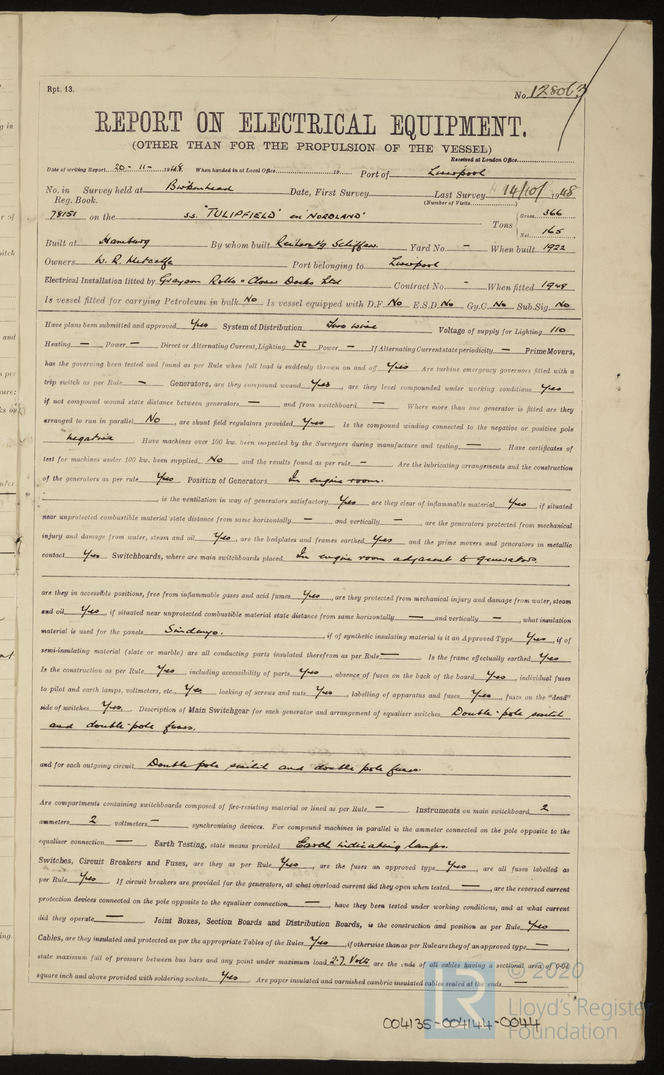 Rpt. 13.
No. 128063
REPORT ON ELECTRICAL EQUIPMENT.
(OTHER THAN FOR THE PROPULSION OF THE VESSEL)
Received at London Office
Date of writing Report 20-11-1948 When handed in at Local Office 19 Port of Liverpool
No. in Survey held at Birkenhead Date, First Survey Last Survey 14/10/1948
Reg. Book. (Number of Visits)
78151 on the s.s. "TULIPFIELD" ex NORDLAND" Tons Gross 366
Net 165
Built at Hamburg By whom built Yard No. - When built 1922
Owners W. R. Metcalfe Port belonging to Liverpool
Electrical Installation fitted by Grayson Rollo & Clover Docks Ltd Contract No. - When fitted 1948
Is vessel fitted for carrying Petroleum in bulk No Is vessel equipped with D.F. No E.S.D. No Gy.C. No Sub.Sig. No
Have plans been submitted and approved Yes System of Distribution Two wire Voltage of supply for Lighting 110
Heating — Power — Direct or Alternating Current, Lighting DC Power — If Alternating Current state periodicity — Prime Movers,
has the governing been tested and found as per Rule when full load is suddenly thrown on and off Yes Are turbine emergency governors fitted with a
trip switch as per Rule — Generators, are they compound wound Yes, are they level compounded under working conditions Yes,
if not compound wound state distance between generators — and from switchboard — Where more than one generator is fitted are they
arranged to run in parallel No, are shunt field regulators provided Yes Is the compound winding connected to the negative or positive pole
negative Have machines over 100 kw. been inspected by the Surveyors during manufacture and testing — Have certificates of
test for machines under 100 kw. been supplied No and the results found as per rule — Are the lubricating arrangements and the construction
of the generators as per rule Yes Position of Generators In engine room.
is the ventilation in way of generators satisfactory Yes are they clear of inflammable material Yes, if situated
near unprotected combustible material state distance from same horizontally — and vertically —, are the generators protected from mechanical
injury and damage from water, steam and oil Yes, are the bedplates and frames earthed Yes and the prime movers and generators in metallic
contact Yes Switchboards, where are main switchboards placed In engine room adjacent to generators.
are they in accessible positions, free from inflammable gases and acid fumes Yes, are they protected from mechanical injury and damage from water, steam
and oil Yes, if situated near unprotected combustible material state distance from same horizontally — and vertically —, what insulation
material is used for the panels Sindanyo., if of synthetic insulating material is it an Approved Type Yes, if of
semi-insulating material (slate or marble) are all conducting parts insulated therefrom as per Rule — Is the frame effectually earthed Yes
Is the construction as per Rule Yes, including accessibility of parts Yes, absence of fuses on the back of the board Yes, individual fuses
to pilot and earth lamps, voltmeters, etc. Yes locking of screws and nuts Yes, labelling of apparatus and fuses Yes, fuses on the "dead"
side of switches Yes. Description of Main Switchgear for each generator and arrangement of equaliser switches Double-pole switch
and double-pole fuses.
and for each outgoing circuit Double pole switch and double pole fuses.
Are compartments containing switchboards composed of fire-resisting material or lined as per Rule — Instruments on main switchboard 2
ammeters 2 voltmeters — synchronising devices. For compound machines in parallel is the ammeter connected on the pole opposite to the
equaliser connection — Earth Testing, state means provided Earth indicating lamps.
Switches, Circuit Breakers and Fuses, are they as per Rule Yes, are the fuses an approved type Yes, are all fuses labelled as
per Rule Yes If circuit breakers are provided for the generators, at what overload current did they open when tested —, are the reversed current
protection devices connected on the pole opposite to the equaliser connection —, have they been tested under working conditions, and at what current
did they operate — Joint Boxes, Section Boards and Distribution Boards, is the construction and position as per Rule Yes
Cables, are they insulated and protected as per the appropriate Tables of the Rules Yes, if otherwise than as per Rule are they of an approved type —,
state maximum fall of pressure between bus bars and any point under maximum load 2.7 Volts are the ends of all cables having a sectional area of 0.01
square inch and above provided with soldering sockets Yes Are paper insulated and varnished cambric insulated cables sealed at the ends —
© 2020
Lloyd's Register
Foundation
004135-004144-0044